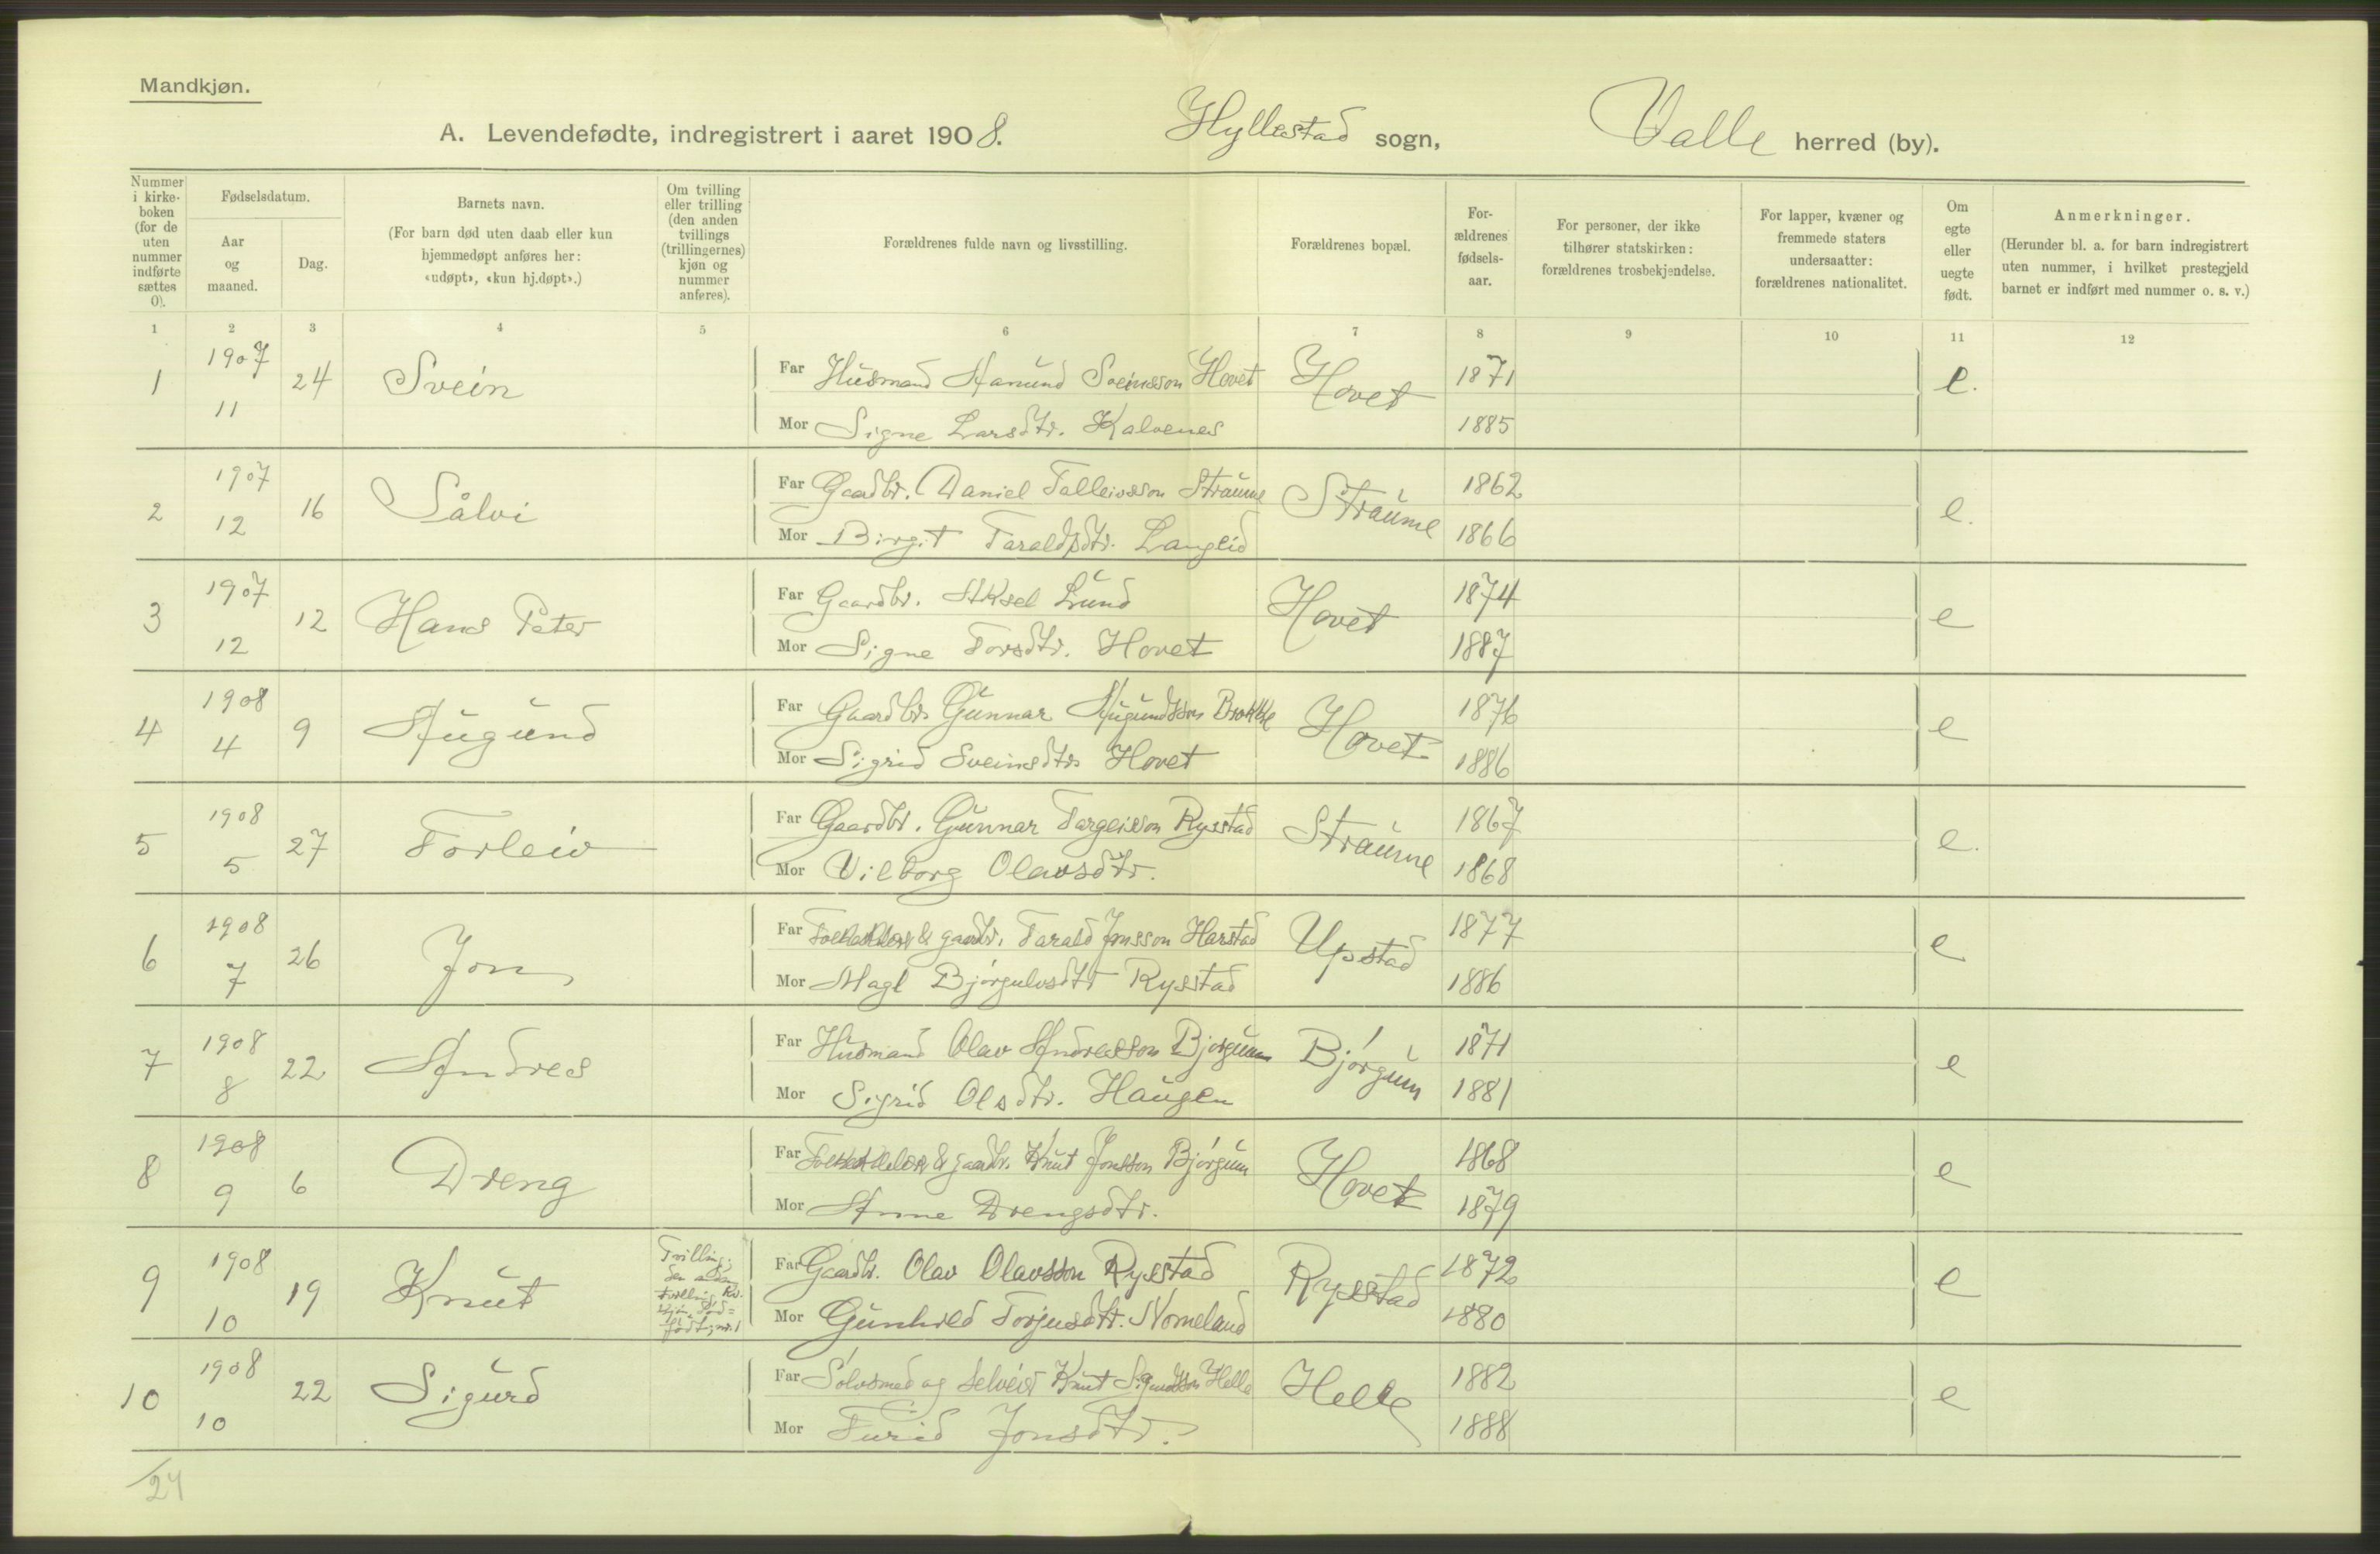 Mandkjøn.
A. Levendefødte, indregistrert i aaret 1908. Hyllestad sogn, Valle herred (by).
Nummer i kirke-boken (for de uten nummer indførte sættes 0).
Fødselsdatum.
Aar og maaned.
Dag.
Barnets navn.
(For barn død uten daab eller kun hjemmedøpt anføres her: «udøpt», «kun hj.døpt».)
Om tvilling eller trilling (den anden tvillings (trillingernes) kjøn og nummer anføres).
Forældrenes fulde navn og livsstilling.
Forældrenes bopæl.
For-ældrenes fødsels-aar.
For personer, der ikke tilhører statskirken: forældrenes trosbekjendelse.
For lapper, kvæner og fremmede staters undersaatter: forældrenes nationalitet.
Om egte eller uegte født.
Anmerkninger.
(Herunder bl. a. for barn indregistrert uten nummer, i hvilket prestegjeld barnet er indført med nummer o. s. v.)
1 2 3 4 5 6 7 8 9 10 11 12
1 1907 11 24 Svein Far Husmand Aamund Sveinsson Hovet Hovet 1871 e.
Mor Signe Larsdtr. Kalvenes 1885
2 1907 12 16 Sålvi Far Gaardbr. Daniel Talleivsson Straume Straume 1862 e.
Mor Birgit Taraldsdtr. Langeid 1866
3 1907 12 12 Hans Peter Far Gaardbr. Aksel Lund Hovet 1874 e
Mor Signe Torsdtr. Hovet 1887
4 1908 4 9 Augund Far Gaardbr Gunnar Augundsson Brokke Hovet 1876 e
Mor Sigrid Sveinsdtr Hovet 1886
5 1908 5 27 Torleiv Far Gaardbr. Gunnar Targeisson Rysstad Straume 1867 e.
Mor Vilborg Olavsdtr. 1868
6 1908 7 26 Jon Far & gaardbr. Tarald Jonsson Harstad Upstad 1877 e
Mor Magl Bjørgulvsdtr Rysstad 1886
7 1908 8 22 Andres Far Husmand Olav Andresson Bjørgum Bjørgum 1871 e
Mor Sigrid Olsdtr. Haugen 1881
8 1908 9 6 Dreng Far & gaardbr. Knut Jonsson Bjørgum Hovet 1868 e
Mor Anne Drengsdtr. 1879
9 1908 10 19 Knut Tvilling; den anden tvilling Kv. kjøn, død=født, nr. 1 Far Gaardbr. Olav Olavsson Rysstad Rysstad 1872 e
Mor Gunhild Torjusdtr. Nomeland 1880
10 1908 10 22 Sigurd Far Sølvsmed og selveier Knut Helle Helle 1882 e
Mor Turid Jonsdtr. 1888
/24